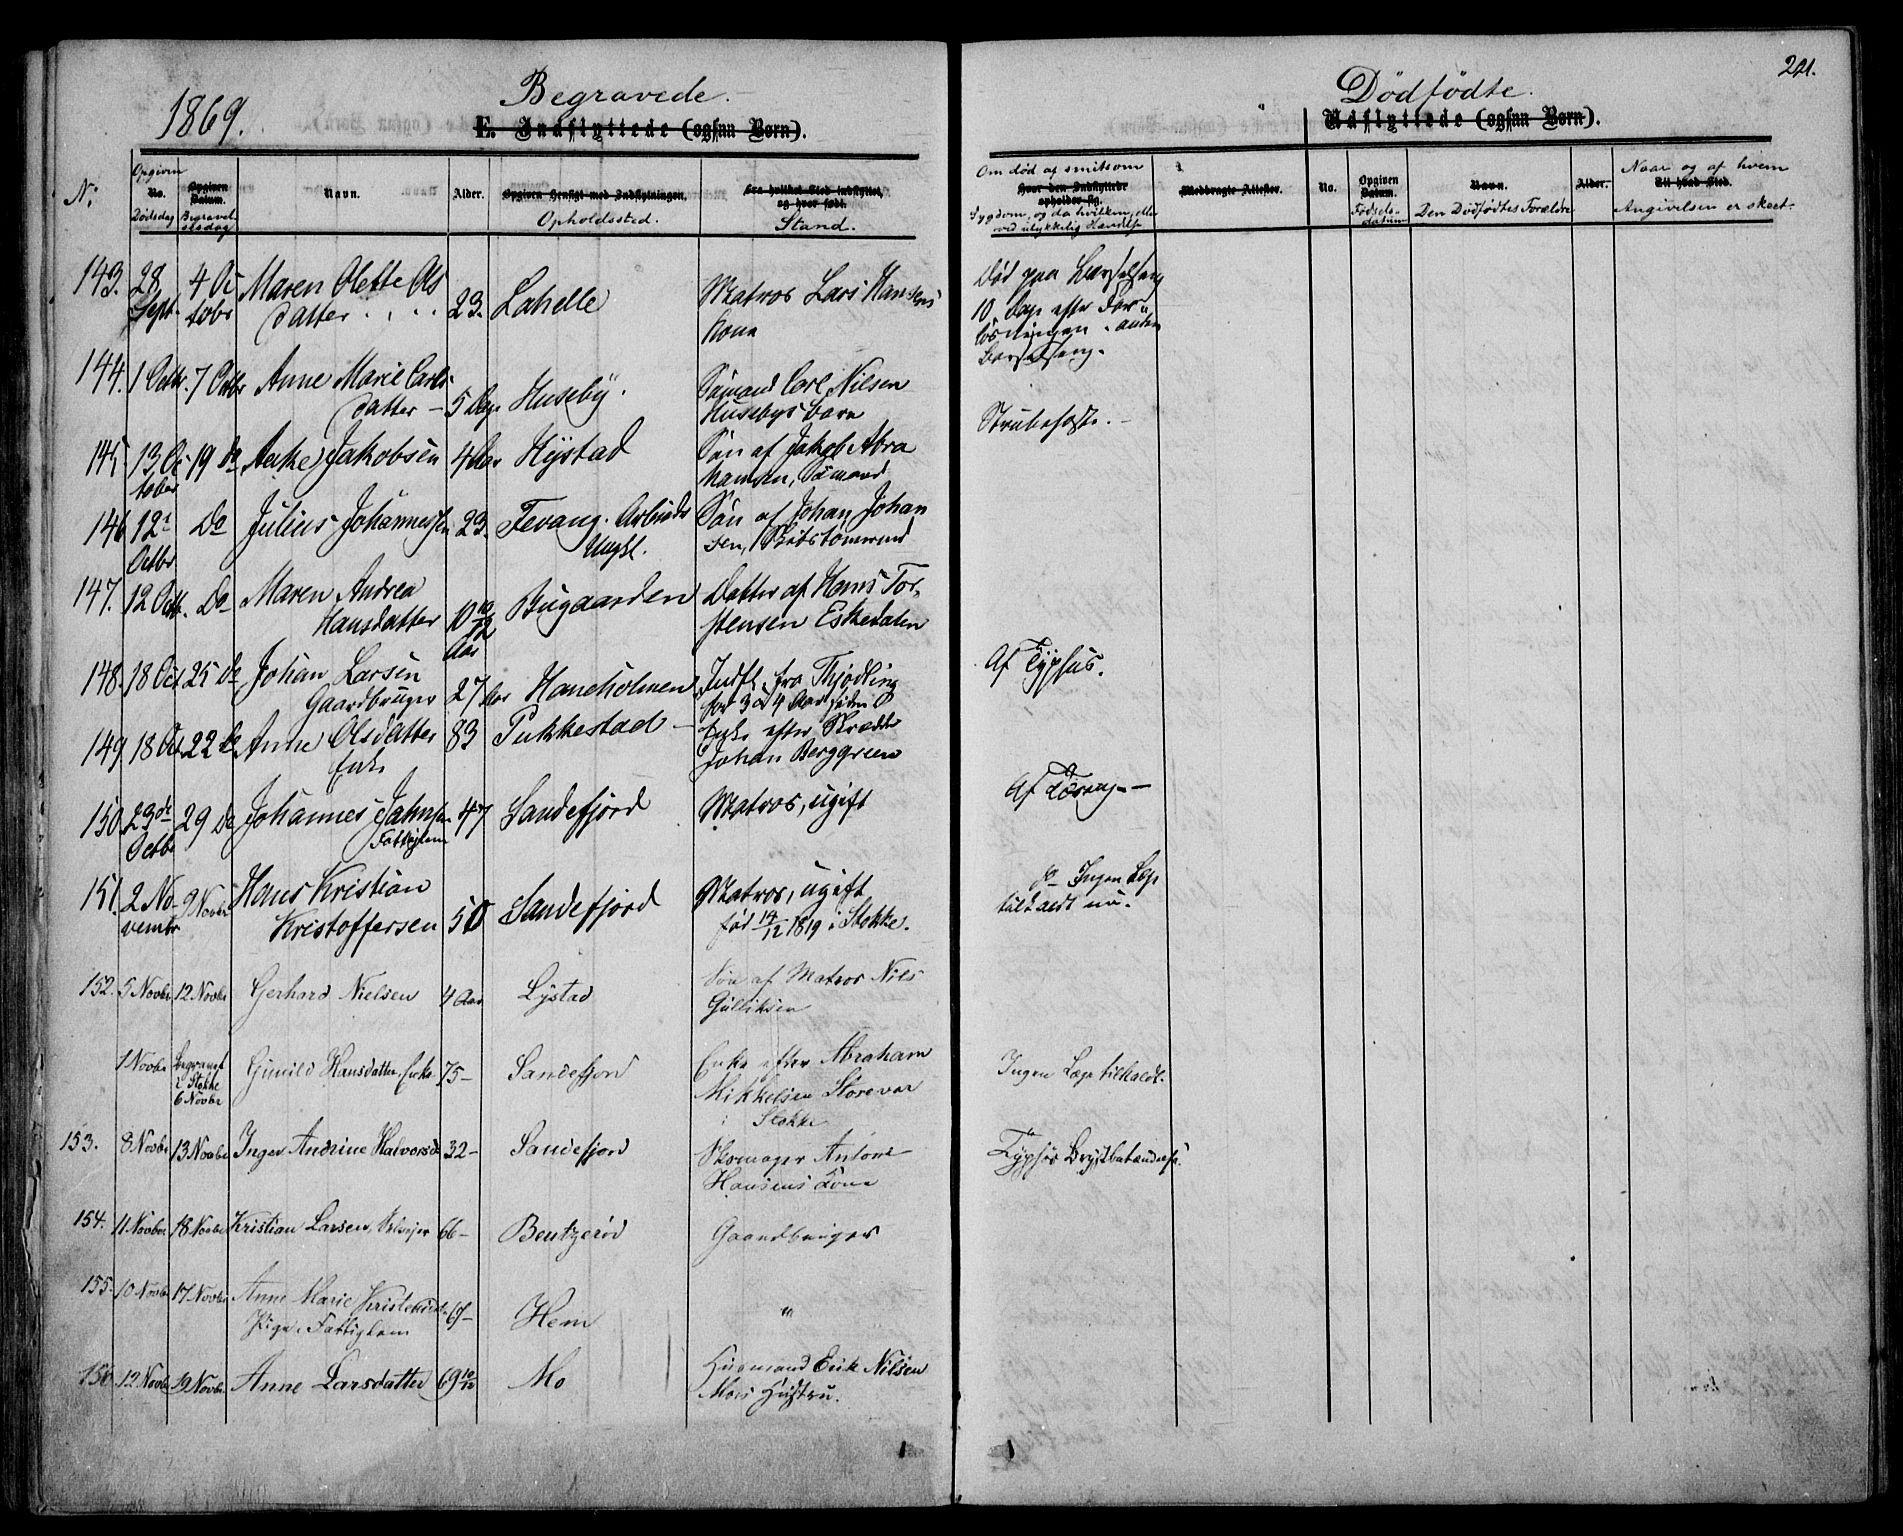 1869.
Begravede.
E. Indflyttede (ogsaa Børn).
No. Opgiven No. Dødsdag Opgiven Datum. Begravelsesdag Navn. Alder. Opgiven Hensigt med Indflytningen. Opholdssted. Fra hvilket Sted indflyttet, og hvor født. Stand.
143. 28 Sept. 4 Octobr Maren Olette Olsdatter 23. Lahelle Matros Lars Hansens Kone
144. 1 Octbr. 7 Octbr Anne Marie Carlsdatter – 5 Dage Huseby. Sømand Carl Nilsen Husebys barn
145 13 October 19 Do Jakobsen 4 Aar Hystad Søn af Jakob Abrahamsen, Sømand
146 12te Octbr Do Julius Johannessen 23. Fevang. Arbeids Ungkl. Søn af Johan Johansen, Skibstømmermand
147. 12 Octb. Do Maren Andrea Hansdatter 10 10/12 Aar Bugaarden Datter af Hans Torstensen Eskedalen
148. 18 Oct 25 Do Johan Larsen Gaardbruger 27 Aar Haneholmen Indfl. fra Thjødling for 3 a 4 Aar siden
149 18 Oct 22 Do Anne Olsdatter Enke 83 Pukkestad – Enke efter Skrædder Johan Berggreen
150 23de Octbr 29 Do Johannes Jahnsen Fattiglem 47 Sandefjord Matros, ugift
151. 2 Novembr 9 Novbr Hans Kristian Kristoffersen 50 Sandefjord Matros, ugift fød 14/12 1819 i Stokke.
152. 5 Novbr 12 Novbr Gerhard Nielsen 4 Aar Lystad Søn af Matros Nils Gulliksen
1 Novbr begravet i Stokke 6 Novbr Gunild Hansdatter. Enke 75– Sandefjord Enke efter Abraham Mikkelsen Storevar i Stokke
153. 8 Novbr 13 Novbr Inger Andrine Halvorsd 32– Sandefjord Skomager Antons Hansens Kone
154. 11 Novbr 18 Novbr Kristian Larsen, Selveier 66– Bentzerød Gaardbruger
155. 10 Novbr 17 Novbr Anne Marie Pige, Fattiglem 67– Hem "
156 12 Novbr 19 Novbr Anne Larsdatter 69 10/12 Mo Husmand Erik Nilsen Moes Hustru.
Dødfødte.
221.
Udflyttede (ogsaa Børn).
Om død af smitsom Hvor den Indflyttede opholder sig. Sygdom, og da hvilken, eller ved ulykkelig Hændelse Medbragte Attester. No. Opgiven Datum. Fødselsdatum Navn. Den Dødfødtes Forældre Alder. Naar og af hvem Til hvad Sted. Angivelsen er skeet.
Død paa Barselseng
10 Dage efter Forløsningen.
Barselseng.
Strubehoste. –
Af Typhus.
Af Tæring –
Do Ingen Læge
tilkaldt nu.
Ingen Læge tilkaldt.
Typhøs Brystbetændelse.